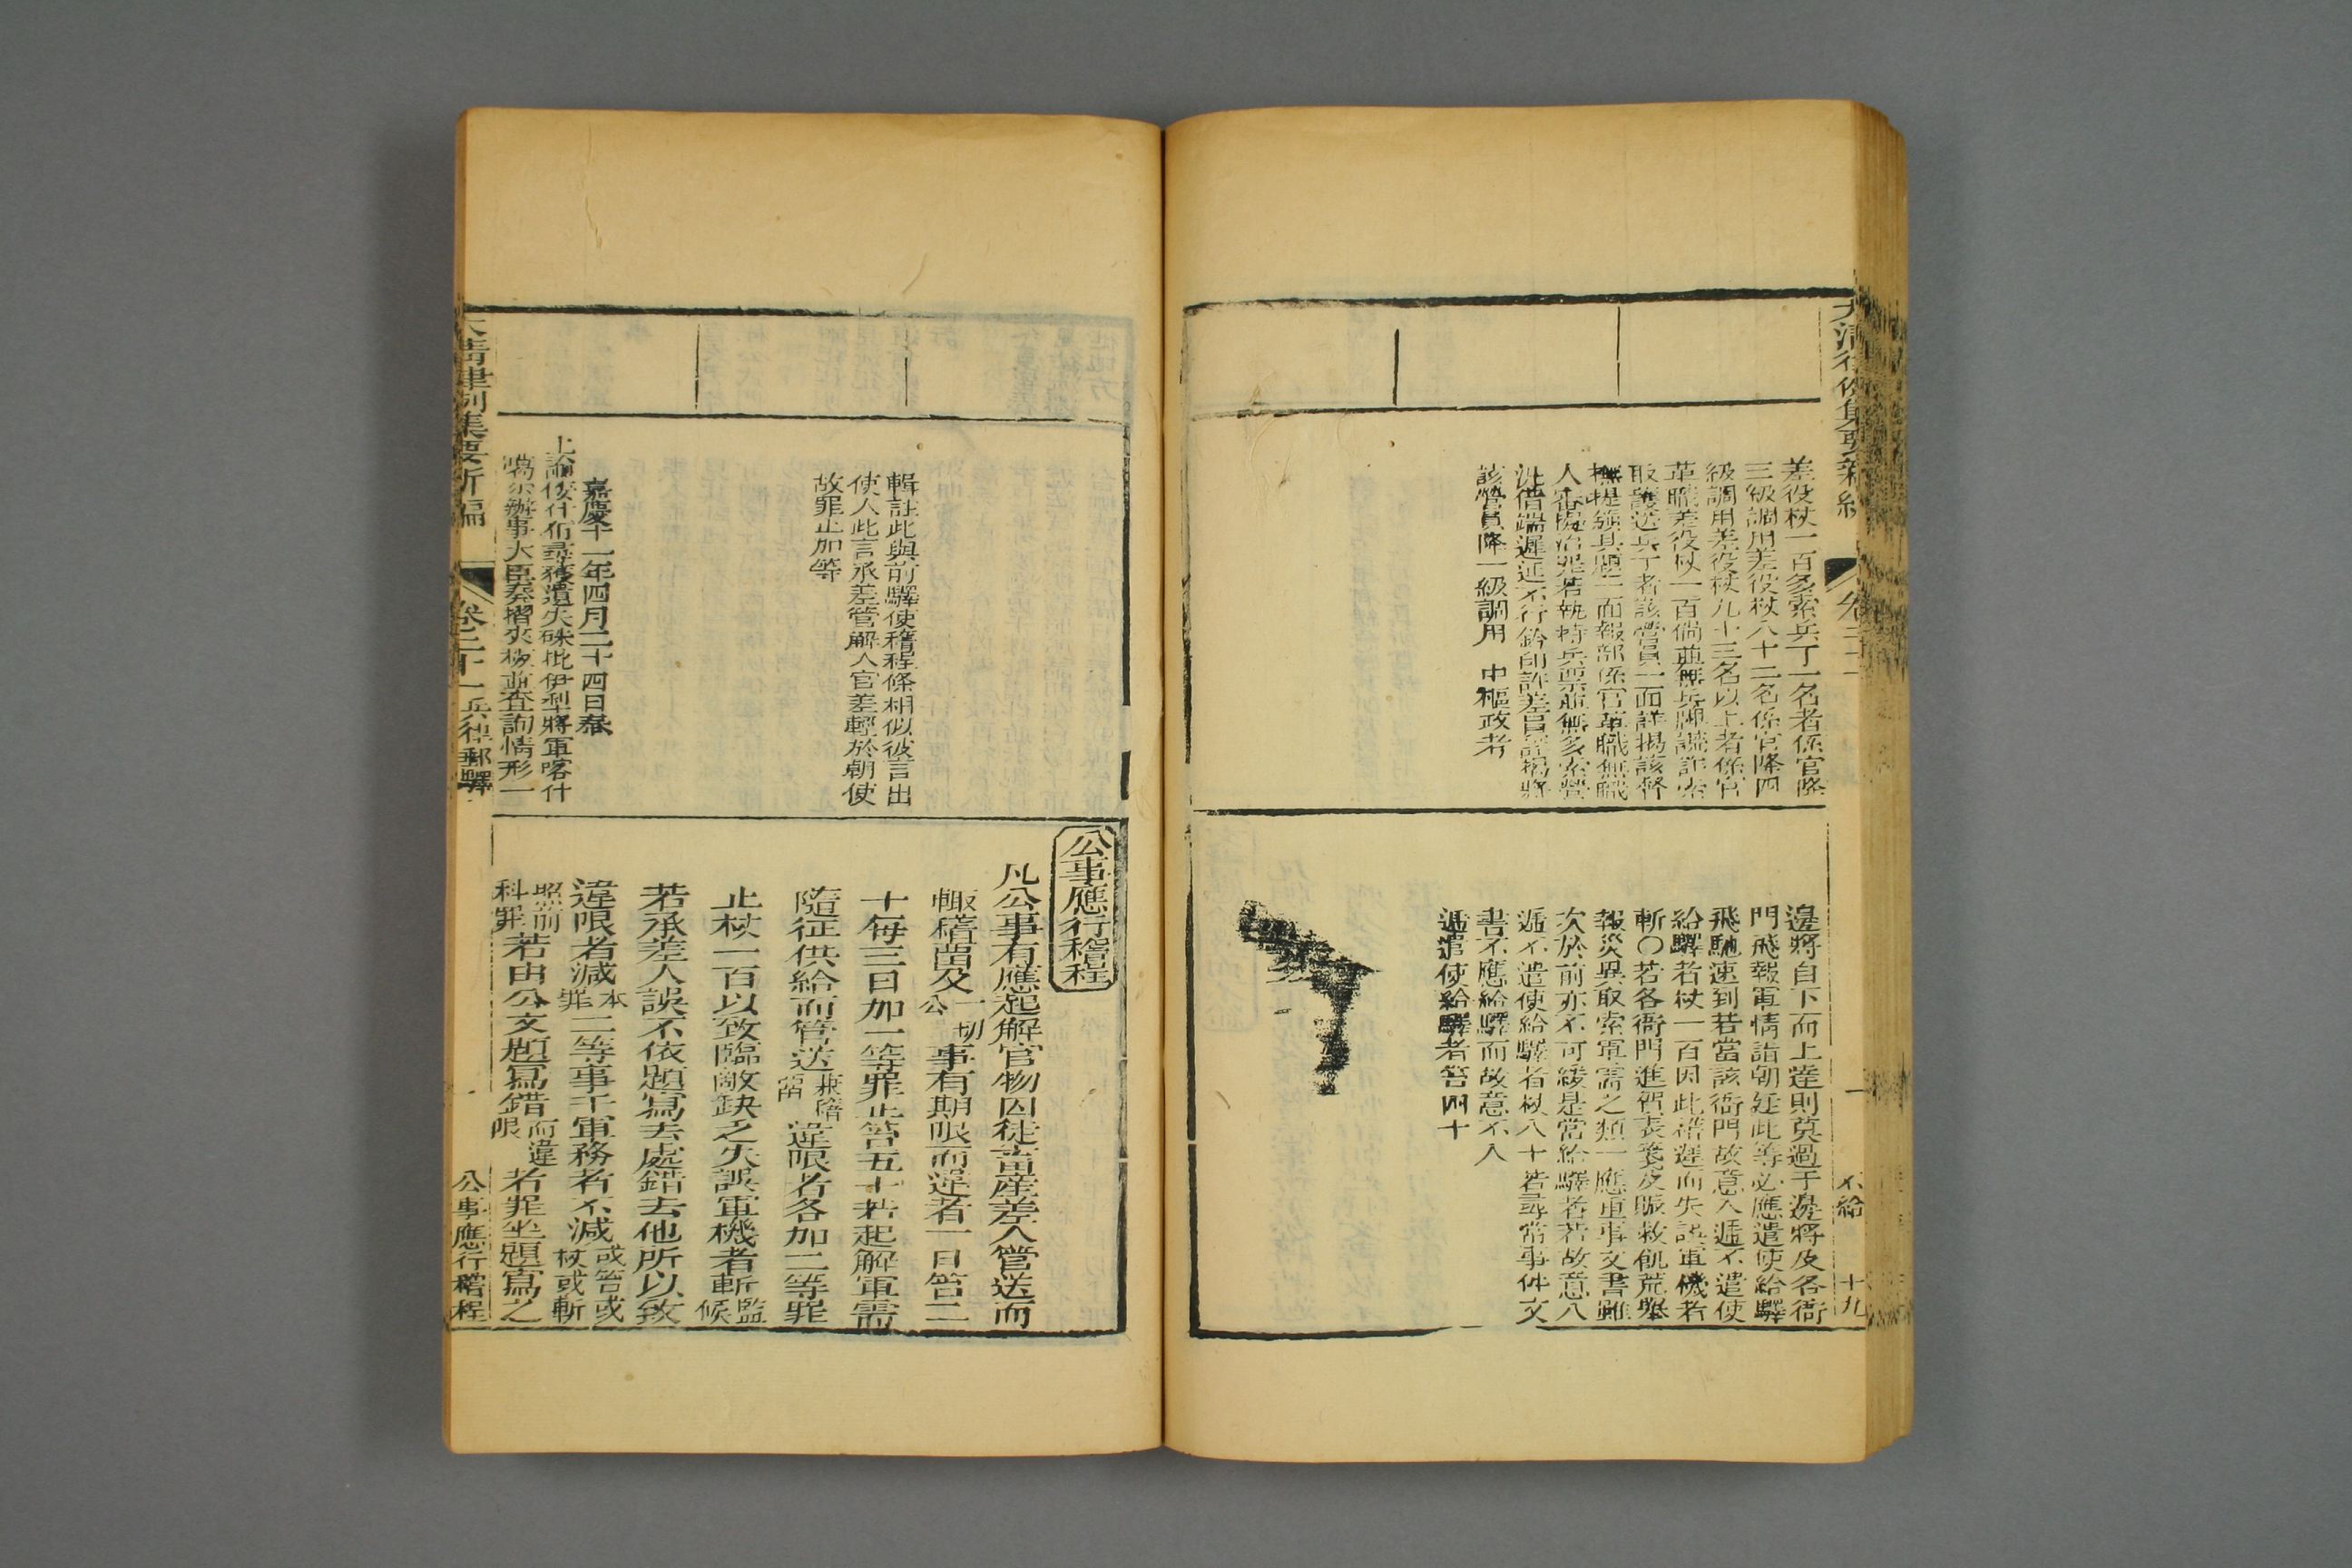 差役杖一百多索兵丁一名者係官降
三級調用差役杖八十二名係官降四
級調用差役杖九十三名以上者係官
革職差役杖一百倘並無兵牌謊詐索
取護送兵丁者該營員一面詳揭該督
撫提鎮具題一面報部係官革職無職
人審擬治罪若執持兵票並無多索營
汛借端遲延不行鈐印許差員詳揭將
該營員降一級調用　中樞政考
邊將自下而上達則莫過于邊將及各衙
門飛報軍情詣朝廷此等必應遣使給驛
飛馳速到若當該衙門故意入遞不遣使
給驛者杖一百因此稽遲而失誤軍機者
斬〇若各衙門進賀表箋及賑救飢荒舉
報災異取索軍需之類一應重事文書雖
次於前亦不可緩是當給驛者若故意入
遞不遣使給驛者杖八十若尋常事件文
書不應給驛而故意不入
遞遣使給驛者笞四十
不給
十九
輯註此與前驛使稽程條相似彼言出
使人此言承差管解人官差輕於朝使
故罪止加等
嘉慶十一年四月二十四日奉
上諭
噶尔辦事大臣奏摺夾板並查詢情形一
公事應行稽程
凡公事有應起解官物囚徒畜產差人管送而
輒稽留及一切公事有期限而違者一日笞二
十每三日加一等罪止笞五十若起解軍需
隨征供給而管送兼稽留違限者各加二等罪
止杖一百以致臨敵缺乏失誤軍機者斬監候
若承差人誤不依題寫去處錯去他所以致
違限者減本罪二等事干軍務者不減或笞或杖或斬
照前科罪若由公文題寫錯而違限者罪坐題寫之
大清律例集要新編
卷二十一兵律郵驛
公事應行稽程